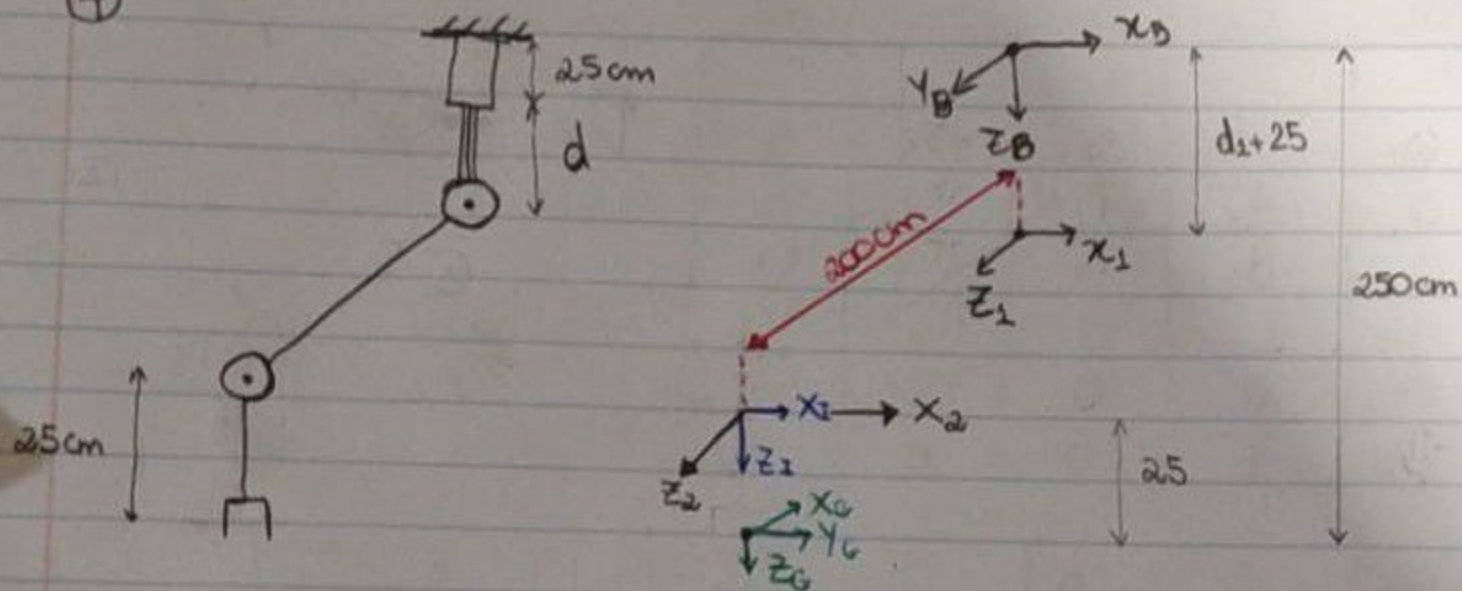 25cm
d
25cm
xB
YB
ZB
d1+25
200cm
x1
Z1
250cm
XI
X2
ZI
Z2
25
XG
YG
ZG